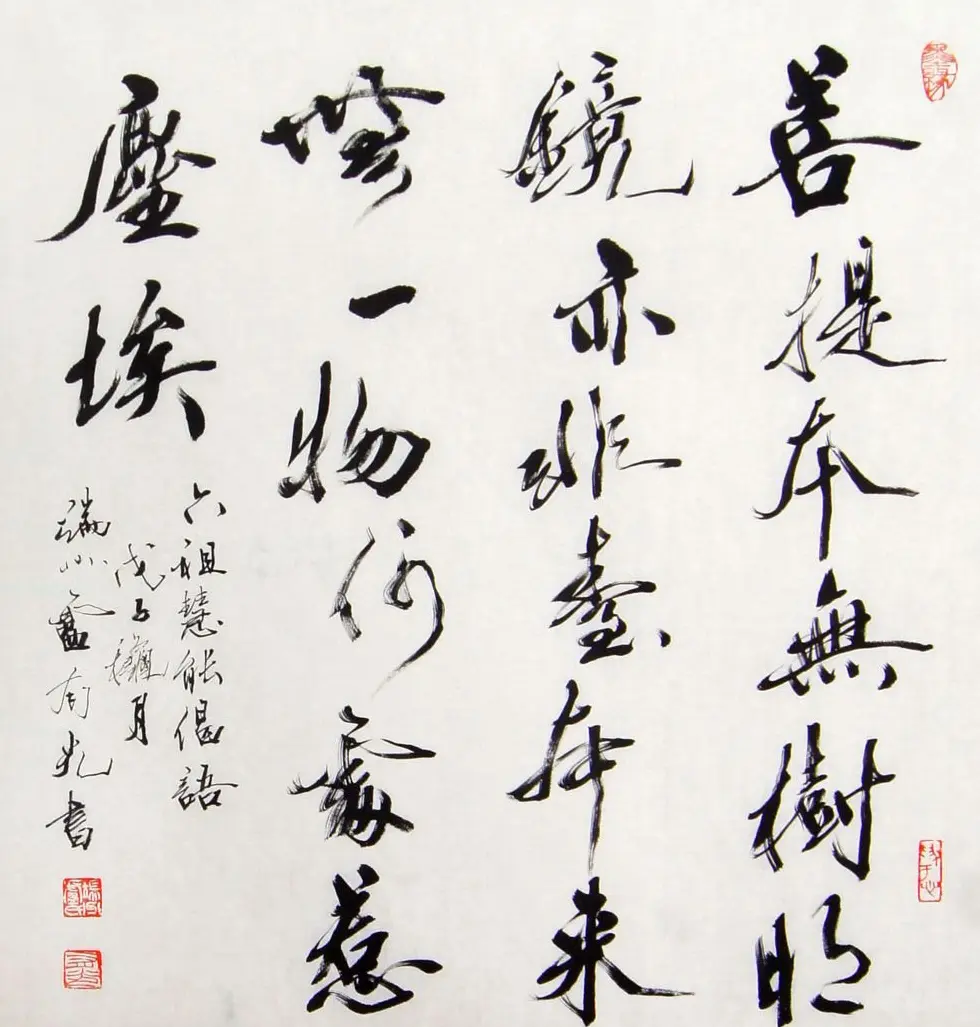 菩提本無樹明
鏡亦非臺本來
無一物何處惹
塵埃
六祖慧能偈語
戊子臘月
端州盧有光書